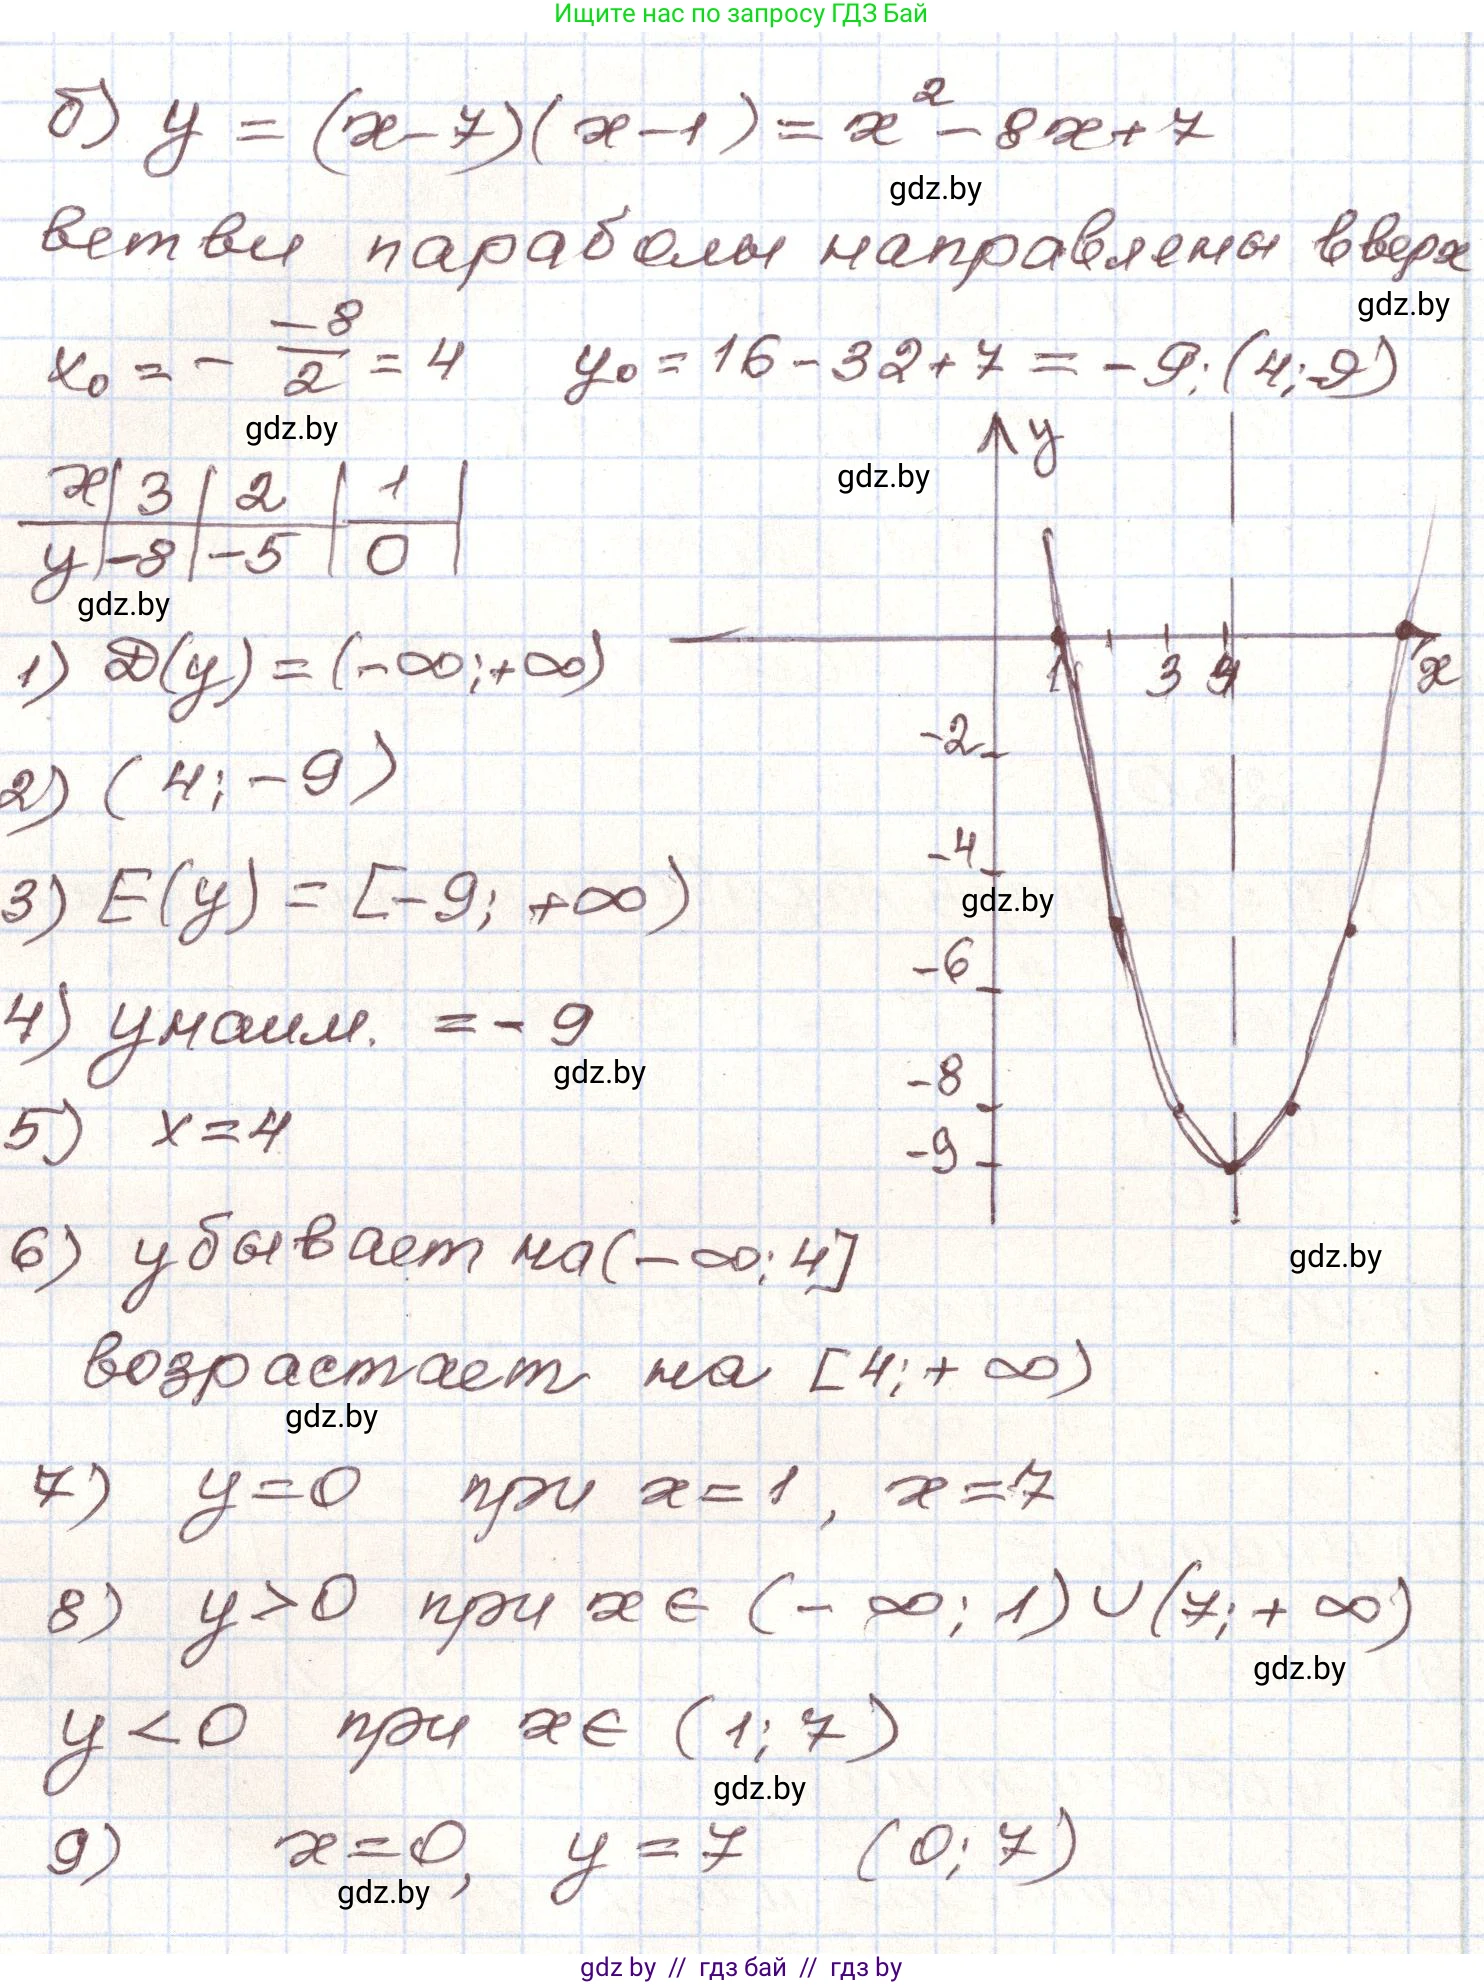 Ищите нас по запросу ГДЗ Бай
б) y = (x-7)(x-1) = x² - 8x + 7
gdz.by
ветви параболы направлены вверх
gdz.by
x₀ = - -8/2 = 4 y₀ = 16 - 32 + 7 = -9; (4; -9)
gdz.by
x | 3 | 2 | 1 |
y | -8 | -5 | 0 |
gdz.by
gdz.by
y
1 3 4 x
-2
-4
gdz.by
-6
-8
-9
1) D(y) = (-∞; +∞)
2) (4; -9)
3) E(y) = [-9; +∞)
4) y наим. = -9
gdz.by
5) x = 4
6) убывает на (-∞; 4]
gdz.by
возрастает на [4; +∞)
gdz.by
7) y = 0 при x = 1, x = 7
8) y > 0 при x ∈ (-∞; 1) ∪ (7; +∞)
gdz.by
y < 0 при x ∈ (1; 7)
gdz.by
9) x = 0, y = 7 (0; 7)
gdz.by
gdz by // гдз бай // гдз by